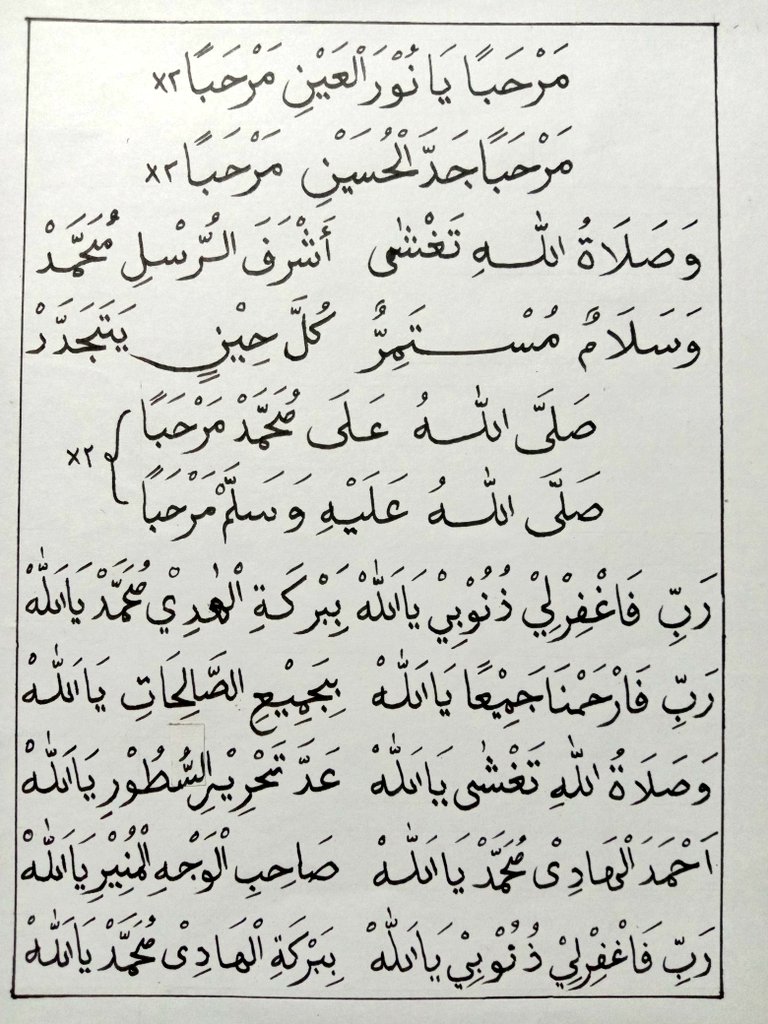 مَرْحَبًا يَا نُوْرَ الْعَيْنِ مَرْحَبًا ×٢
مَرْحَبًا جَدَّ الْحُسَيْنِ مَرْحَبًا ×٢
وَصَلَاةُ اللهِ تَغْشٰى أَشْرَفَ الرُّسْلِ مُحَمَّدْ
وَسَلَامٌ مُسْتَمِرٌّ كُلَّ حِيْنٍ يَتَجَدَّدْ
صَلَّى اللهُ عَلَى مُحَمَّدْ مَرْحَبًا
×٢
صَلَّى اللهُ عَلَيْهِ وَسَلَّمْ مَرْحَبًا
رَبِّ فَاغْفِرْلِيْ ذُنُوْبِيْ يَا اَللهْ بِبَرْكَةِ الْهٰدِيْ مُحَمَّدْ يَا اَللهْ
رَبِّ فَارْحَمْنَا جَمِيْعًا يَا اَللهْ بِجَمِيْعِ الصَّالِحَاتِ يَا اَللهْ
وَصَلَاةُ اللهِ تَغْشٰى يَا اَللهْ عَدَّ تَحْرِيْرِ السُّطُوْرِ يَا اَللهْ
اَحْمَدَ الْهَادِىْ مُحَمَّدْ يَا اَللهْ صَاحِبِ الْوَجْهِ الْمُنِيْرِ يَا اَللهْ
رَبِّ فَاغْفِرْلِيْ ذُنُوْبِيْ يَا اَللهْ بِبَرْكَةِ الْهَادِىْ مُحَمَّدْ يَا اَللهْ